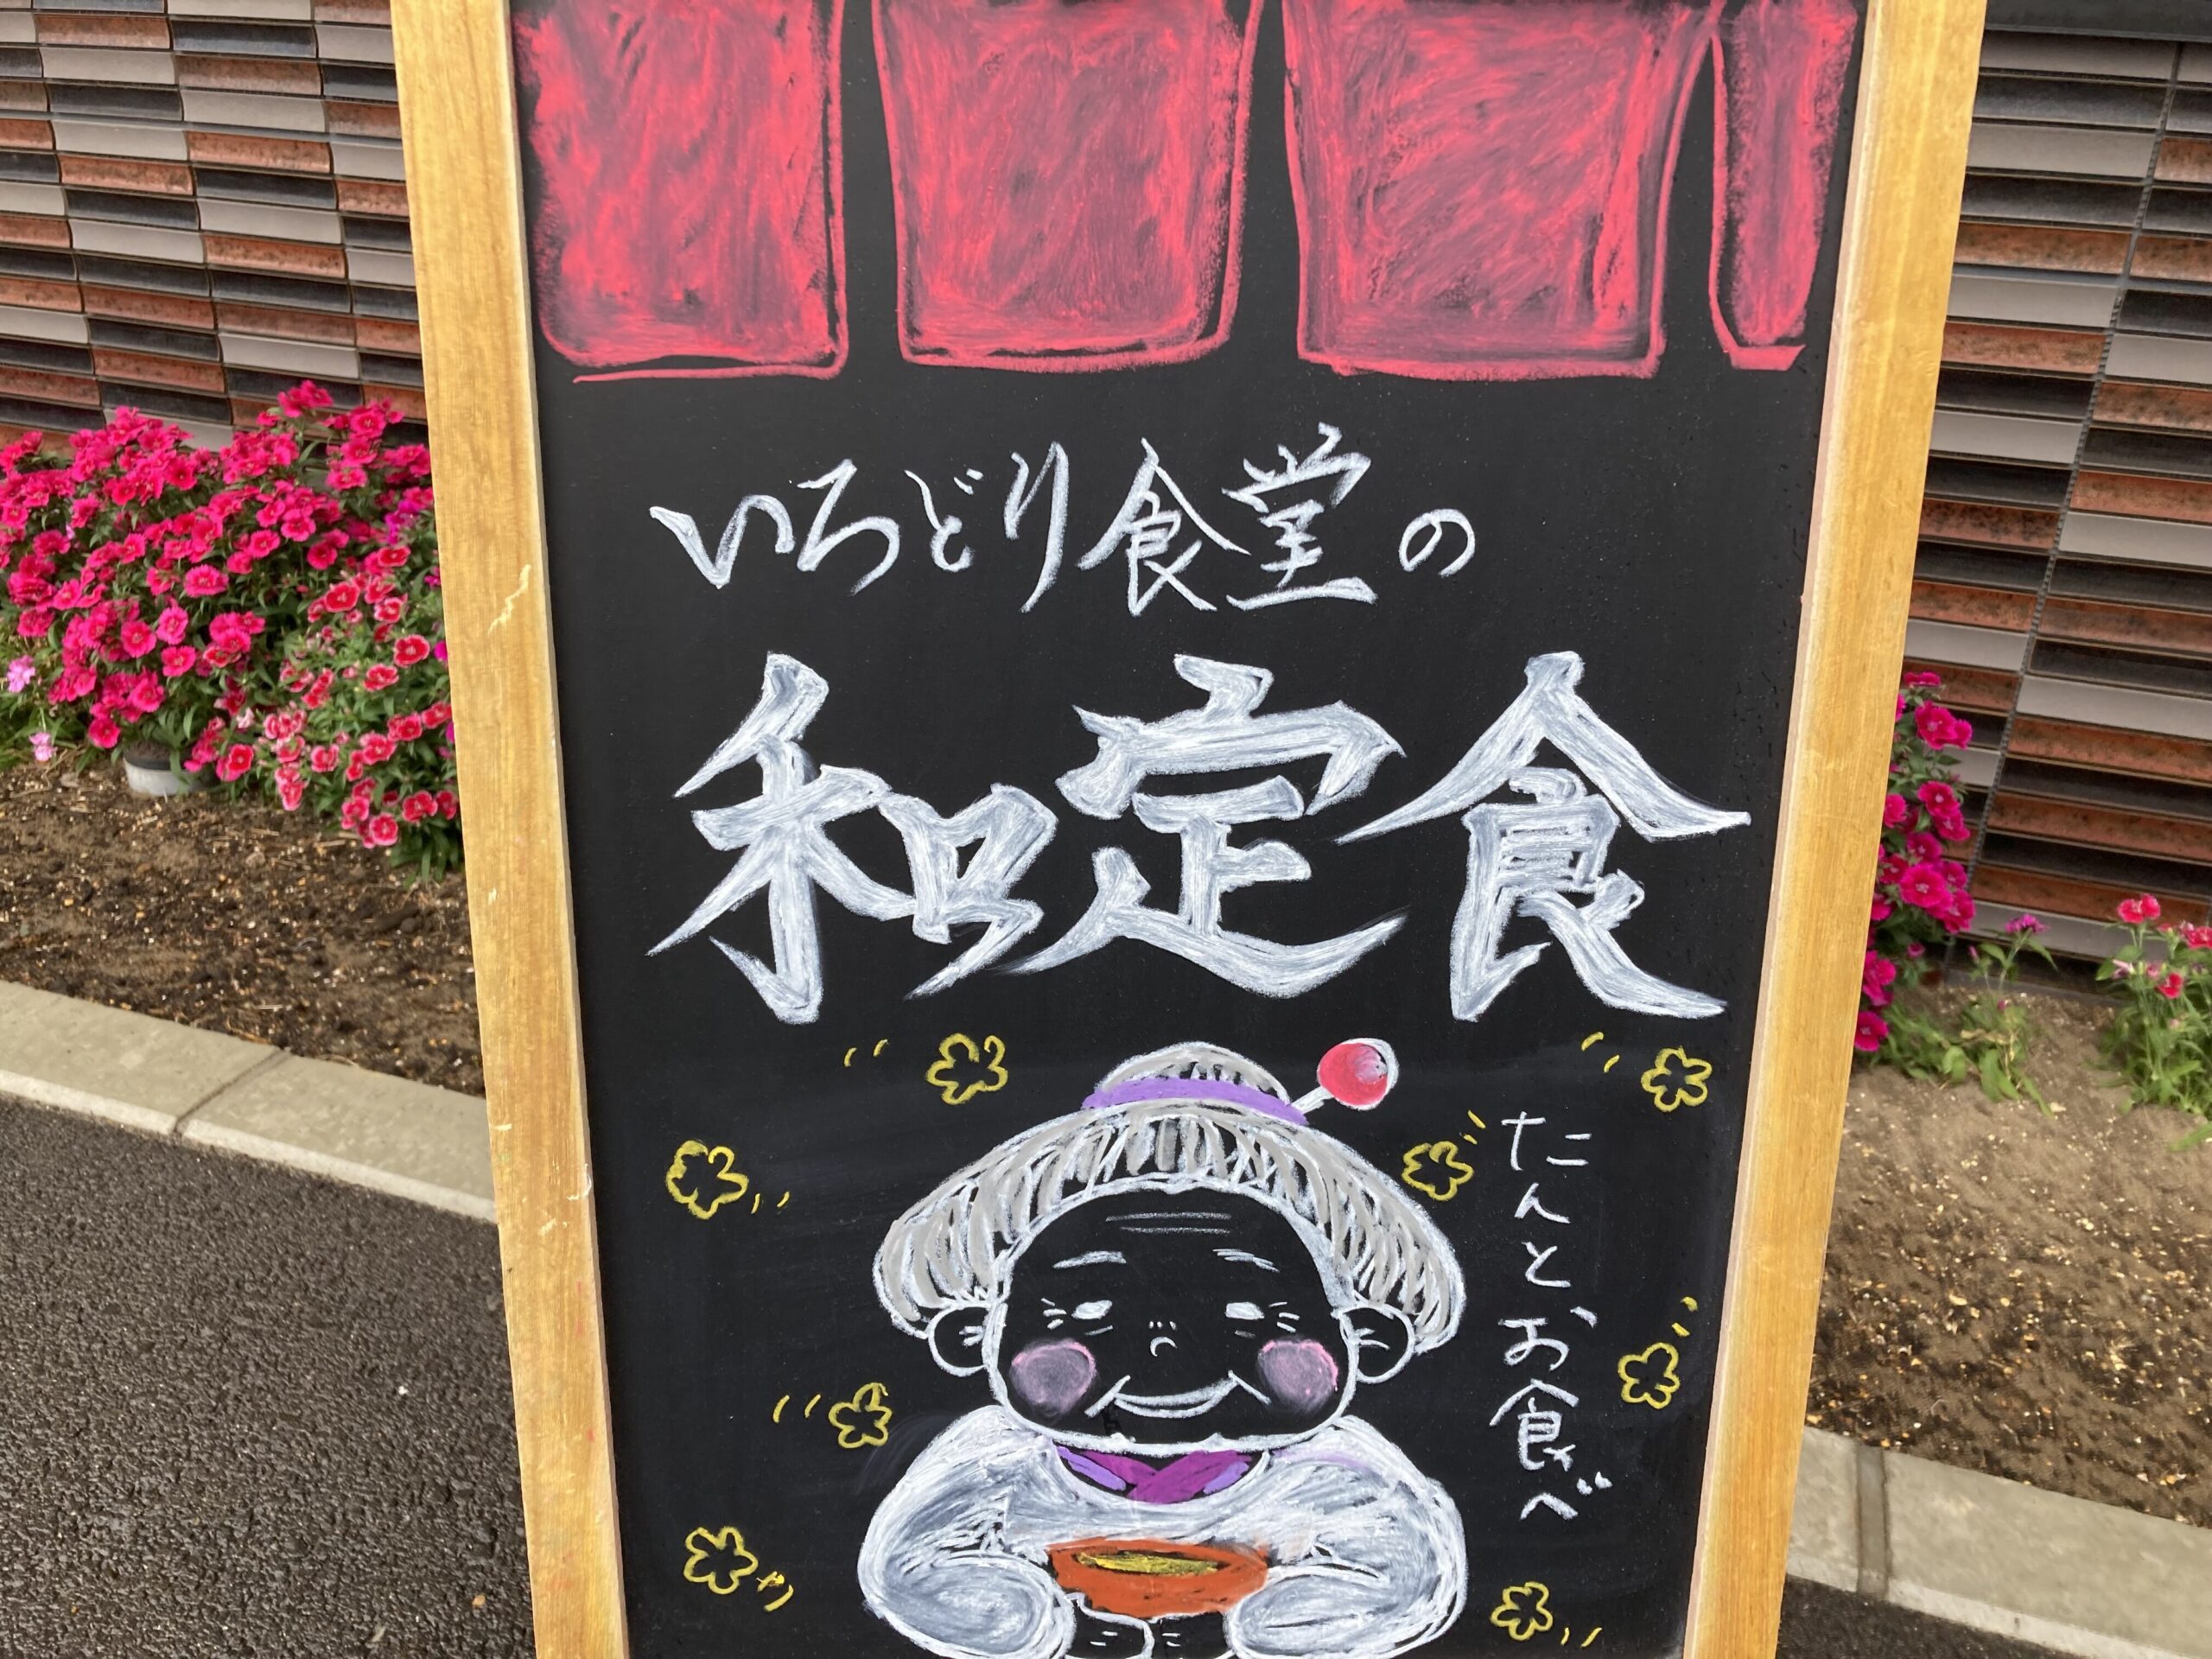 いろどり食堂の
和定食
たんとお食べ